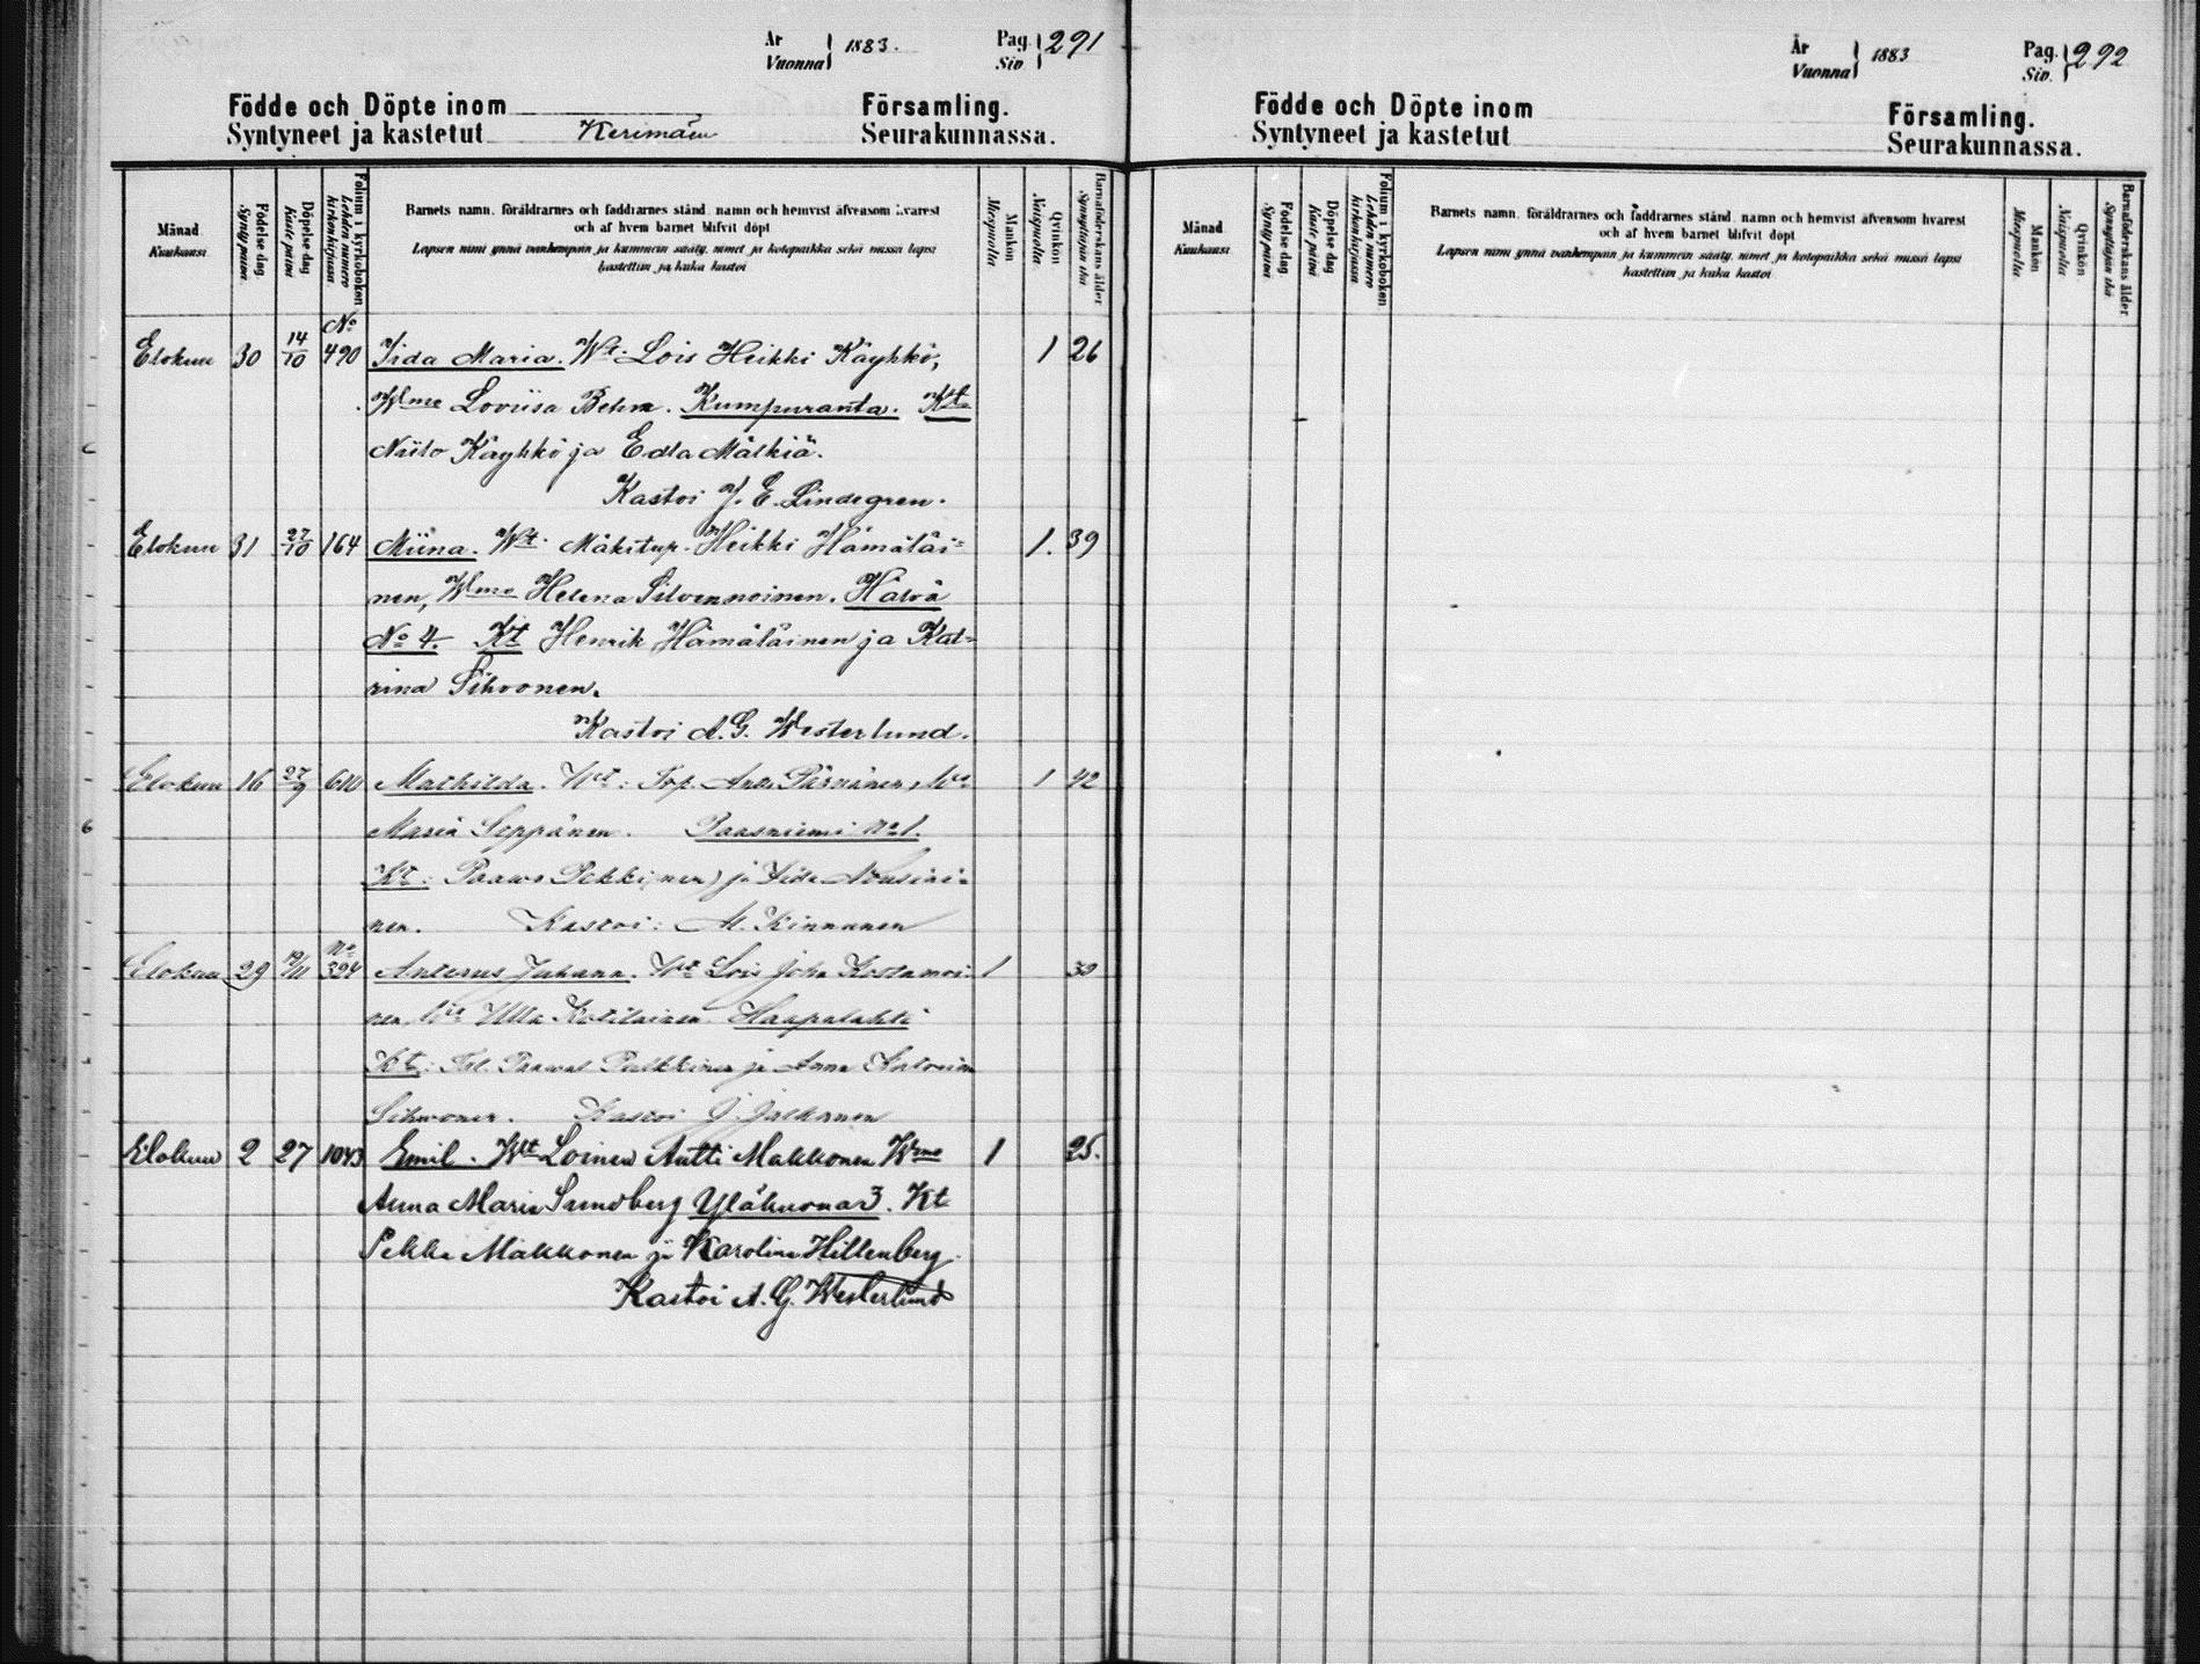 År
Vuonna 1883.
Pag.
Siv. 291
Födde och Döpte inom Församling.
Syntyneet ja kastetut Kerimäen Seurakunnassa.
Månad
Kuukausi
Födelse dag
Synty päivä
Döpelse dag
Kaste päivä
Folium i kyrkoboken
Lehden numero
kirkonkirjassa
Barnets namn, föräldrarnes och faddrarnes stånd, namn och hemvist äfvensom hvarest
och af hvem barnet blifvit döpt
Lapsen nimi ynnä vanhempain ja kummein sääty, nimet ja kotopaikka sekä missä lapsi
kastettiin ja kuka kastoi
Mankön
Miespuolia
Qvinkön
Naispuolia
Barnaföderskans ålder
Synnyttäjän ikä
Elokuu 30 14/10 No 490 Iida Maria. Wt: Lois Heikki Käyhkö, 1 26
Wmo Loviisa Behm. Kumpuranta. Kt
Niilo Käyhkö ja Edla Mälkiä.
Kastoi J. E. Lindegren.
Elokuu 31 27/10 164 Miina. Wt. Mäkitup. Heikki Hämäläi- 1. 39
nen, Wmo Helena Silvennoinen. Härvä
No 4. Kt Henrik Hämäläinen ja Kat-
rina Sihvonen.
Kastoi A. G. Westerlund.
Elokuu 16 27/9 610 Mathilda. Wt: Antti Pärnänen, Wo 1 42
Maria Seppänen. Paasniemi No 1.
Kt: Paavo Pekki(nen) ja Iida Nousiai-
nen. Kastoi: M. Kinnunen
Elokuu 29 19/11 No 324 Anterus Juhana. Wt Lois Joha Kostamoi- 1 30
nen, Wo Ulla Kotilainen. Haapalahti
Kt: Paaval Pulkkinen ja Anna
Sihvonen. Kastoi J. Jalkanen
Elokuu 2 27 1043 Emil. Wt Loinen Antti Makkonen Wmo 1 25.
Anna Maria Sundberg Yläkuona 3. Kt
Pekka Makkonen ja Karolina Hillenberg
Kastoi A. G. Westerlund
6
År
Vuonna 1883
Pag.
Siv. 292
Födde och Döpte inom Församling.
Syntyneet ja kastetut Seurakunnassa.
Månad
Kuukausi
Födelse dag
Synty päivä
Döpelse dag
Kaste päivä
Folium i kyrkoboken
Lehden numero
kirkonkirjassa
Barnets namn, föräldrarnes och faddrarnes stånd, namn och hemvist äfvensom hvarest
och af hvem barnet blifvit döpt
Lapsen nimi ynnä vanhempain ja kummein sääty, nimet ja kotopaikka sekä missä lapsi
kastettiin ja kuka kastoi
Mankön
Miespuolia
Qvinkön
Naispuolia
Barnaföderskans ålder
Synnyttäjän ikä